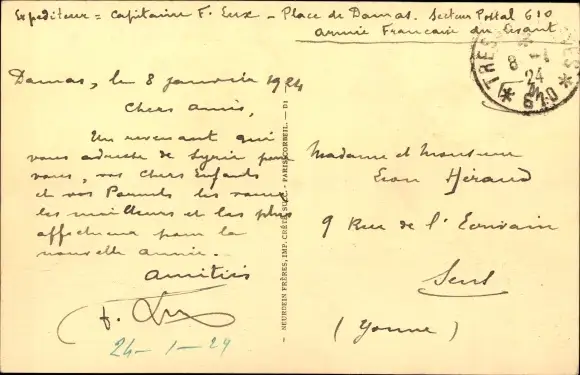 Expéditeur = Capitaine F. Lux - Place de Damas. Secteur Postal 610
Armée Française du Levant
Damas, le 8 janvier 1924
Chers amis,
Un revenant qui
vous adresse de Syrie pour
vous, vos chers Enfants
et vos Parents les vœux
les meilleurs et les plus
affectueux pour la
nouvelle année.
Amitiés
F. Lux
24-1-24
NEURDEIN FRÈRES, IMP. CRÉTÉ, SUCC. - PARIS-CORBEIL. - D1
TRES
8 -1
24
* 610 *
Madame et Monsieur
Léon Héraud
9 Rue de l'Ecrivain
Sens
(Yonne)